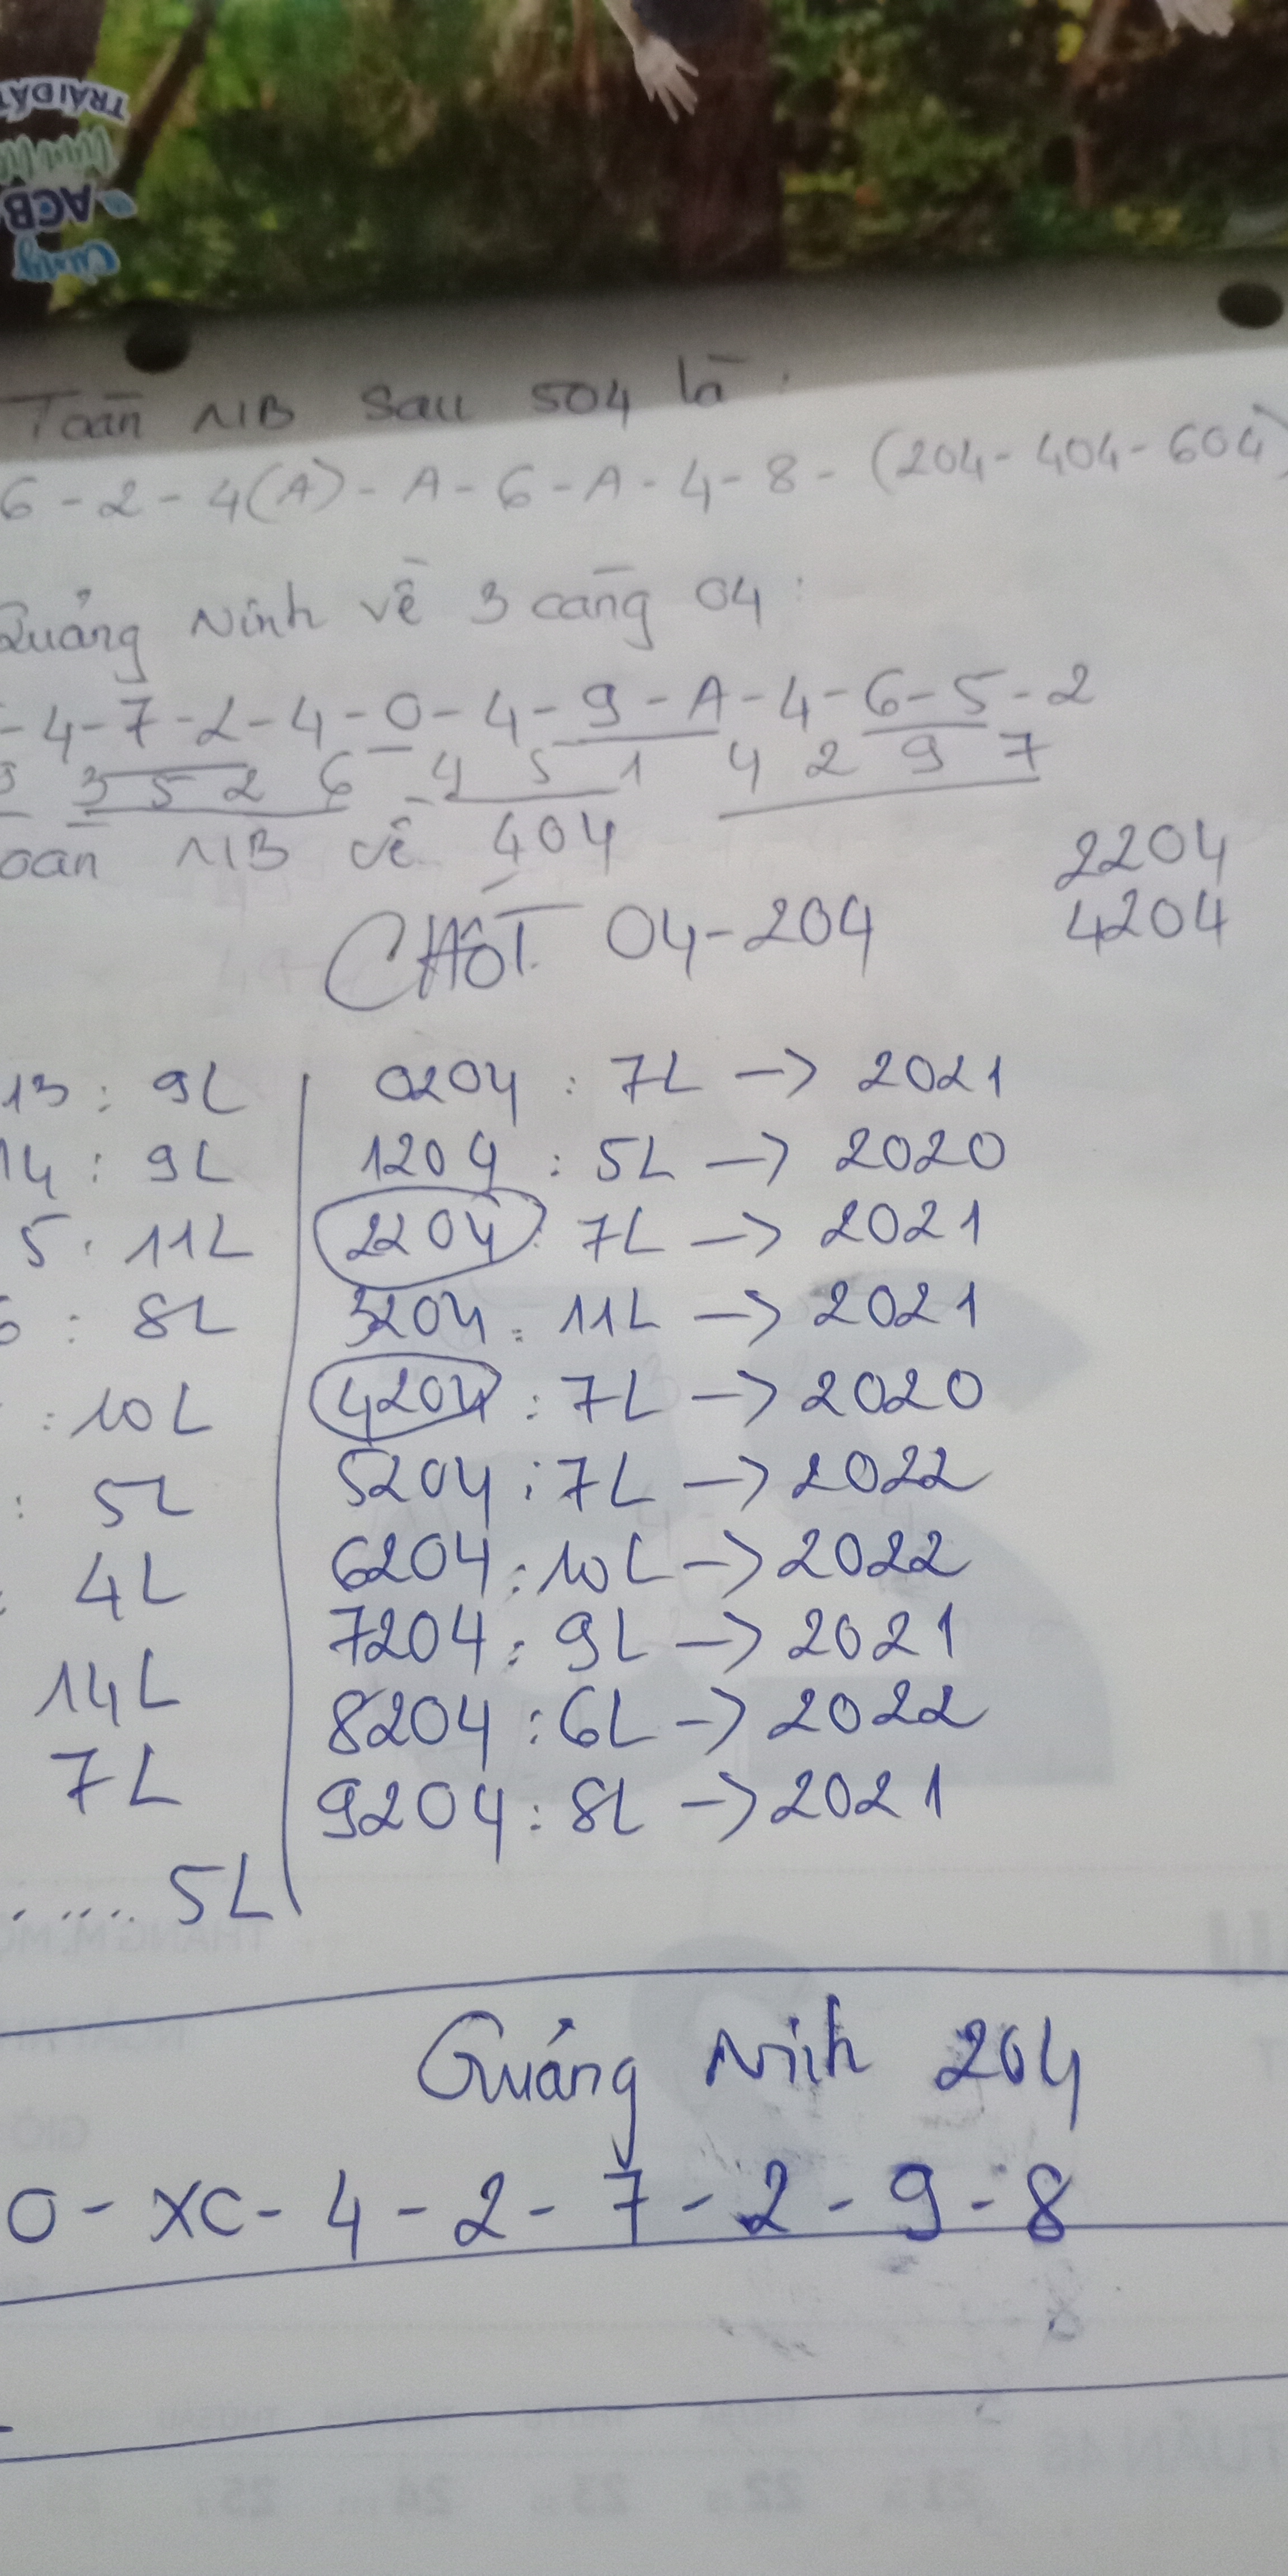 TRÁI ĐẤT
ACB
Cùng
Toàn MB sau 504 là:
6 - 2 - 4(A) - A - 6 - A - 4 - 8 - (204 - 404 - 604)
Quảng Ninh về 3 càng 04:
- 4 - 7 - 2 - 4 - 0 - 4 - 9 - A - 4 - 6 - 5 - 2
3 5 2 6 - 4 5 1 4 2 9 7
oàn MB về 404
2204
CHỐT 04-204
4204
13 : 9L
0204 : 7L -> 2021
14 : 9L
1204 : 5L -> 2020
5 : 11L
2204 : 7L -> 2021
6 : 8L
3204 : 11L -> 2021
: 10L
4204 : 7L -> 2020
: 5L
5204 : 7L -> 2022
: 4L
6204 : 10L -> 2022
14L
7204 : 9L -> 2021
7L
8204 : 6L -> 2022
9204 : 8L -> 2021
..... 5L
Quảng Ninh 204
0 - XC - 4 - 2 - 7 - 2 - 9 - 8